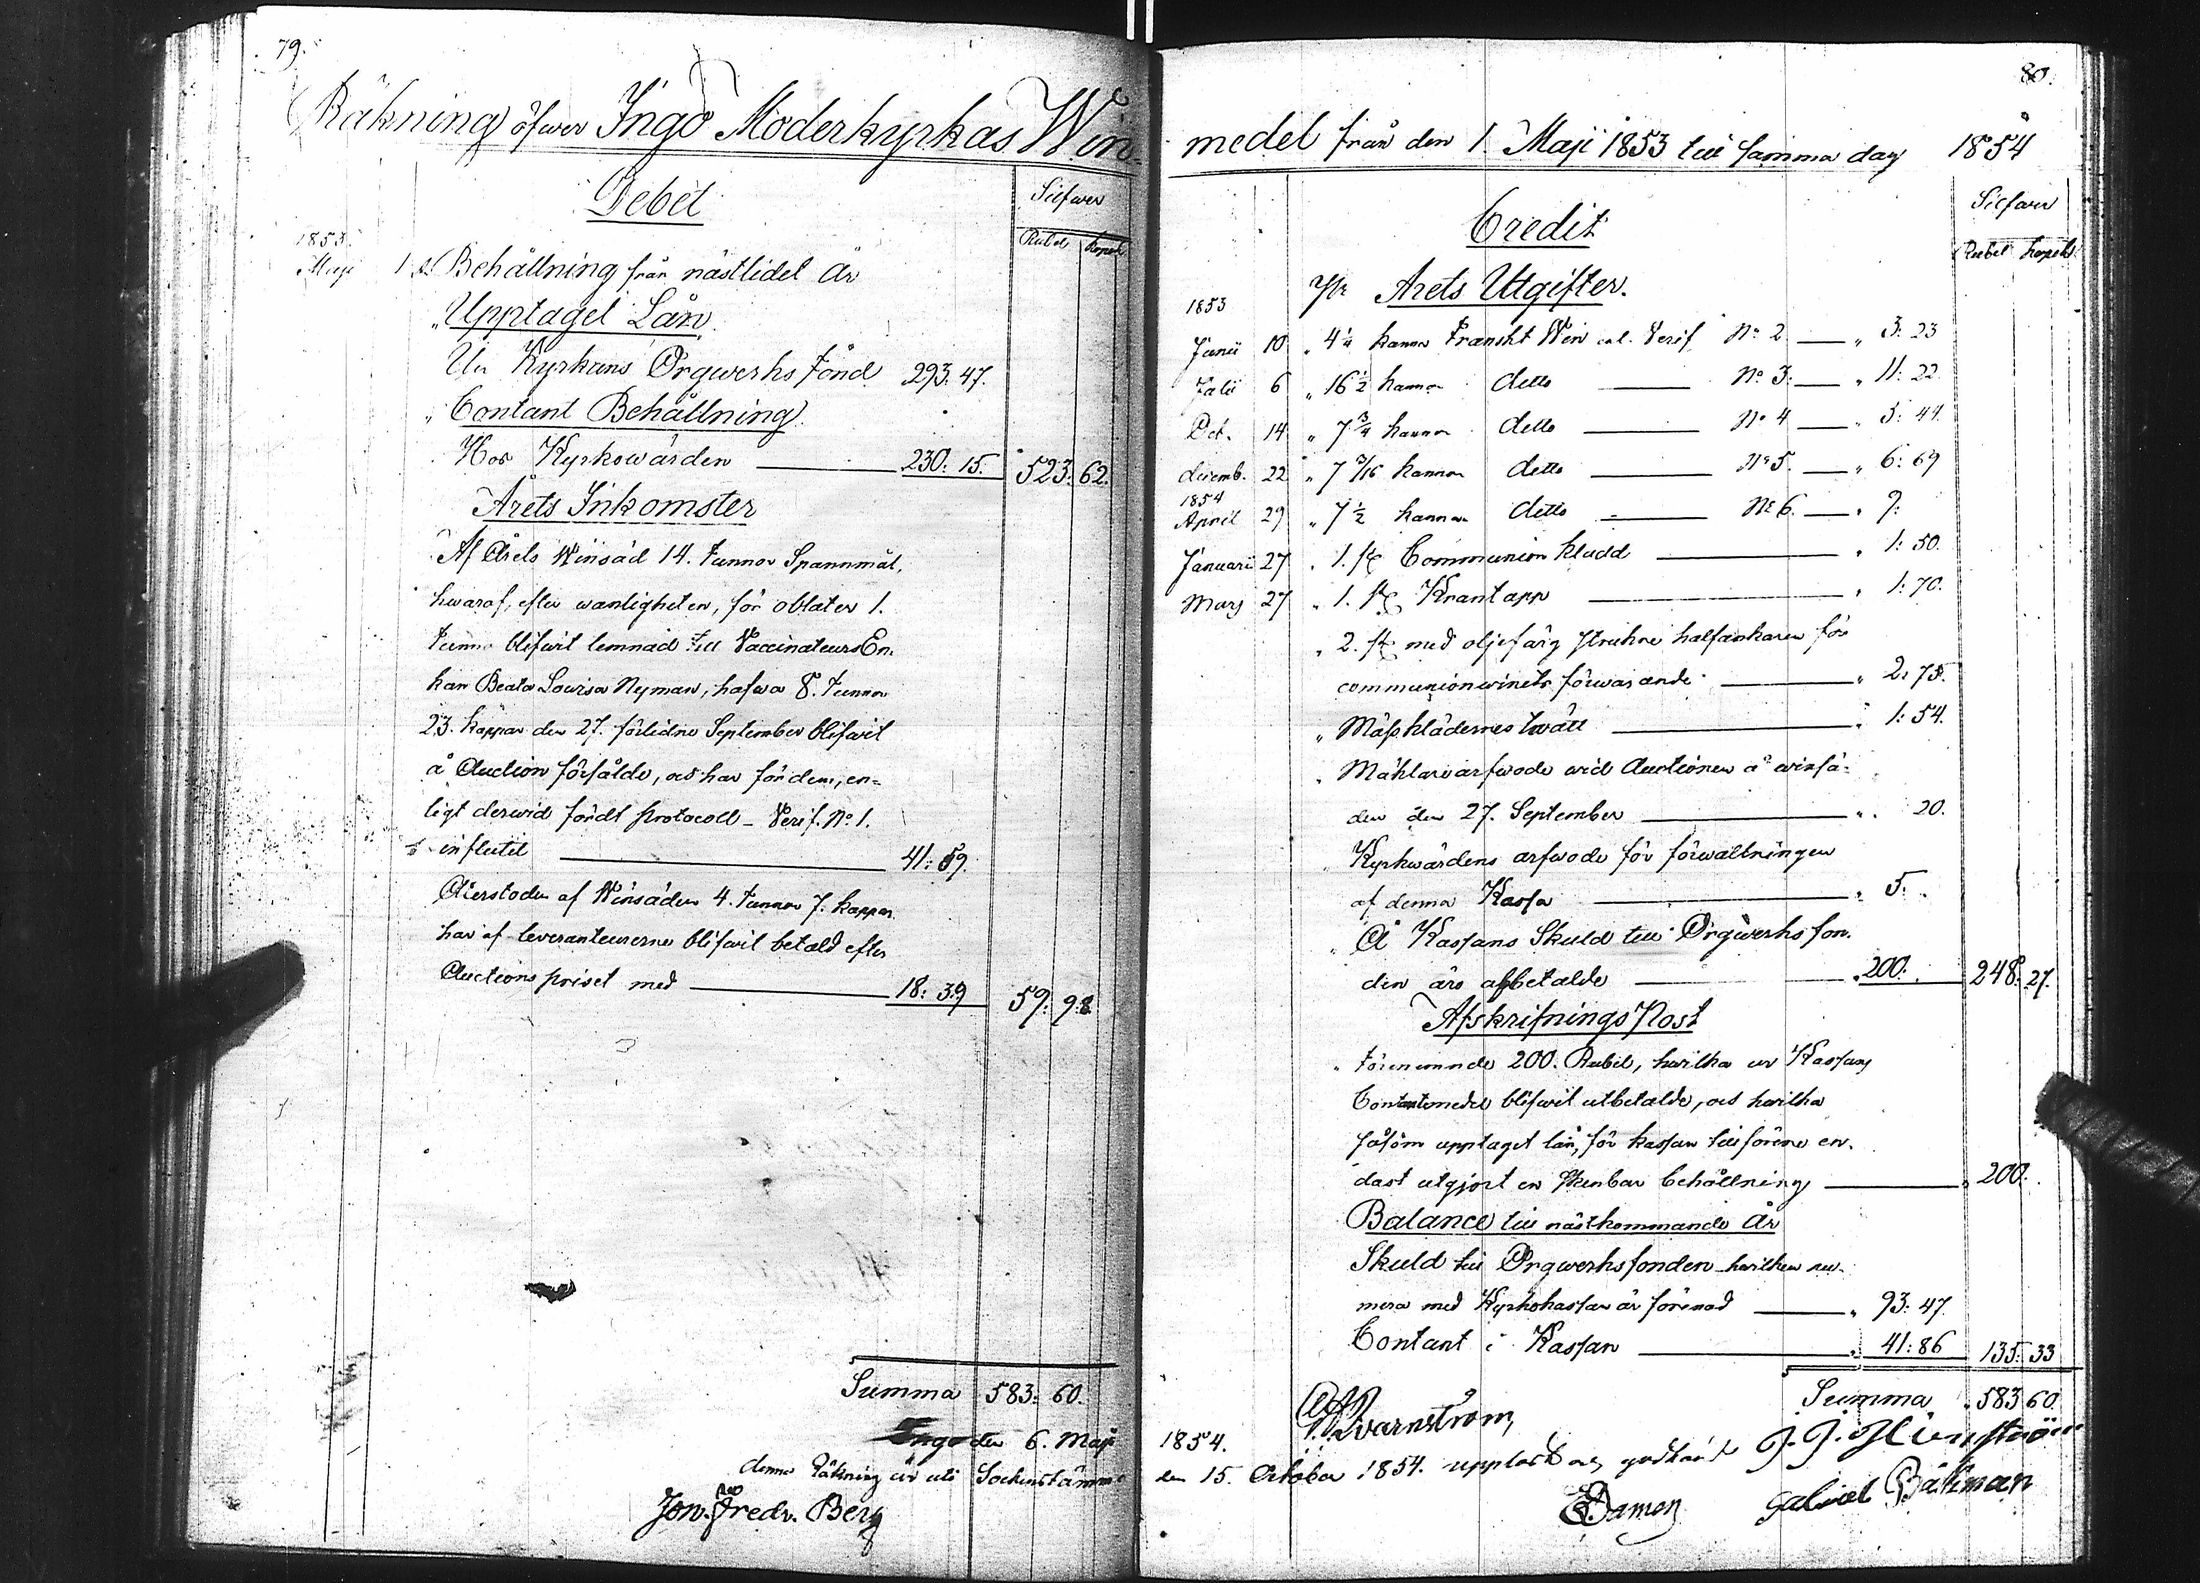 79.
Räkning öfwer Ingo Moderkyrkas Win-
Debet
Silfwer
Rubel Kopek
1853.
Maji 1 st Behållning från nästlidet År
" Upptaget Lån
Ur Kyrkans Orgwerks Fond 293. 47.
" Contant Behållning
Hos Kyrkowärden 230: 15. 523: 62.
Årets Inkomster
Af Årets Winsäd 14. Tunnor Spannmål,
hwaraf, efter wanligheten, för oblater 1.
Tunna blifwit lemnad till Vaccinateurs En-
kan Beata Lowisa Nyman, hafwa 8. Tunnor
23. kappar den 27. förlidne September blifwit
å Auction försålde, och har för dem, en-
ligt derwid fördt protocoll - Verif. No 1.
influtit 41: 59.
Återstoden af Winsäden 4. Tunnor 7. kappar
har af leveranteurerne blifwit betald efter
Auctions priset med 18: 39 59: 98.
Summa 583: 60.
Ingo den 6. Maji
denna Räkning är uti Sockenstämma
Jon. Fredr. Berg
80.
medel från den 1 Maji 1853 till samma dag 1854
Silfwer
Rubel kopek
Credit
Pr Årets Utgifter.
1853
Junii 10 " 4 1/4 kannor Franskt Win enl. Verif No 2 " 3: 23
Julii 6 " 16 1/2 kannor detto No 3. " 11: 22.
Oct. 14 " 7 3/4 kannor detto No 4 " 5: 44.
decemb. 22 " 7 3/16 kannor detto No 5. " 6: 69
1854
April 29 " 7 1/2 kannor detto No 6. " 9.
Januarii 27 " 1. st Communion kladd " 1: 50.
Marj 27 " 1. st Krantapp " 1: 70.
" 2. st med oljefärg strukne halfankaren för
communionwinets förwarande " 2: 75.
" Mässklädernes twätt " 1: 54.
" Mäklarearfwode wid Auctionen å winsä-
den den 27. September " 20.
Kyrkwärdens arfwode för förwaltningen
af denna Kassa " 5.
" Å Kassans Skuld till Orgwerks fon-
den äro afbetalde " 200. 248: 27.
Afskrifnings Post
" Förenämnde 200. Rubel, hwilka ur Kassans
Contantmedel blifwit utbetalde, och hwilka
såsom upptaget lån, för kassan till förene en-
dast utgjort en skenbar behållning " 200.
Balance till nästkommande År
Skuld till Orgwerksfonden hwilken nu-
mera med Kyrkokassan är förenad " 93: 47.
Contant i Kassan " 41: 86 135: 33
Summa 583 60
Qvarnström,
1854.
den 15. October 1854. uppläst och godkänd
Gabriel Båkman